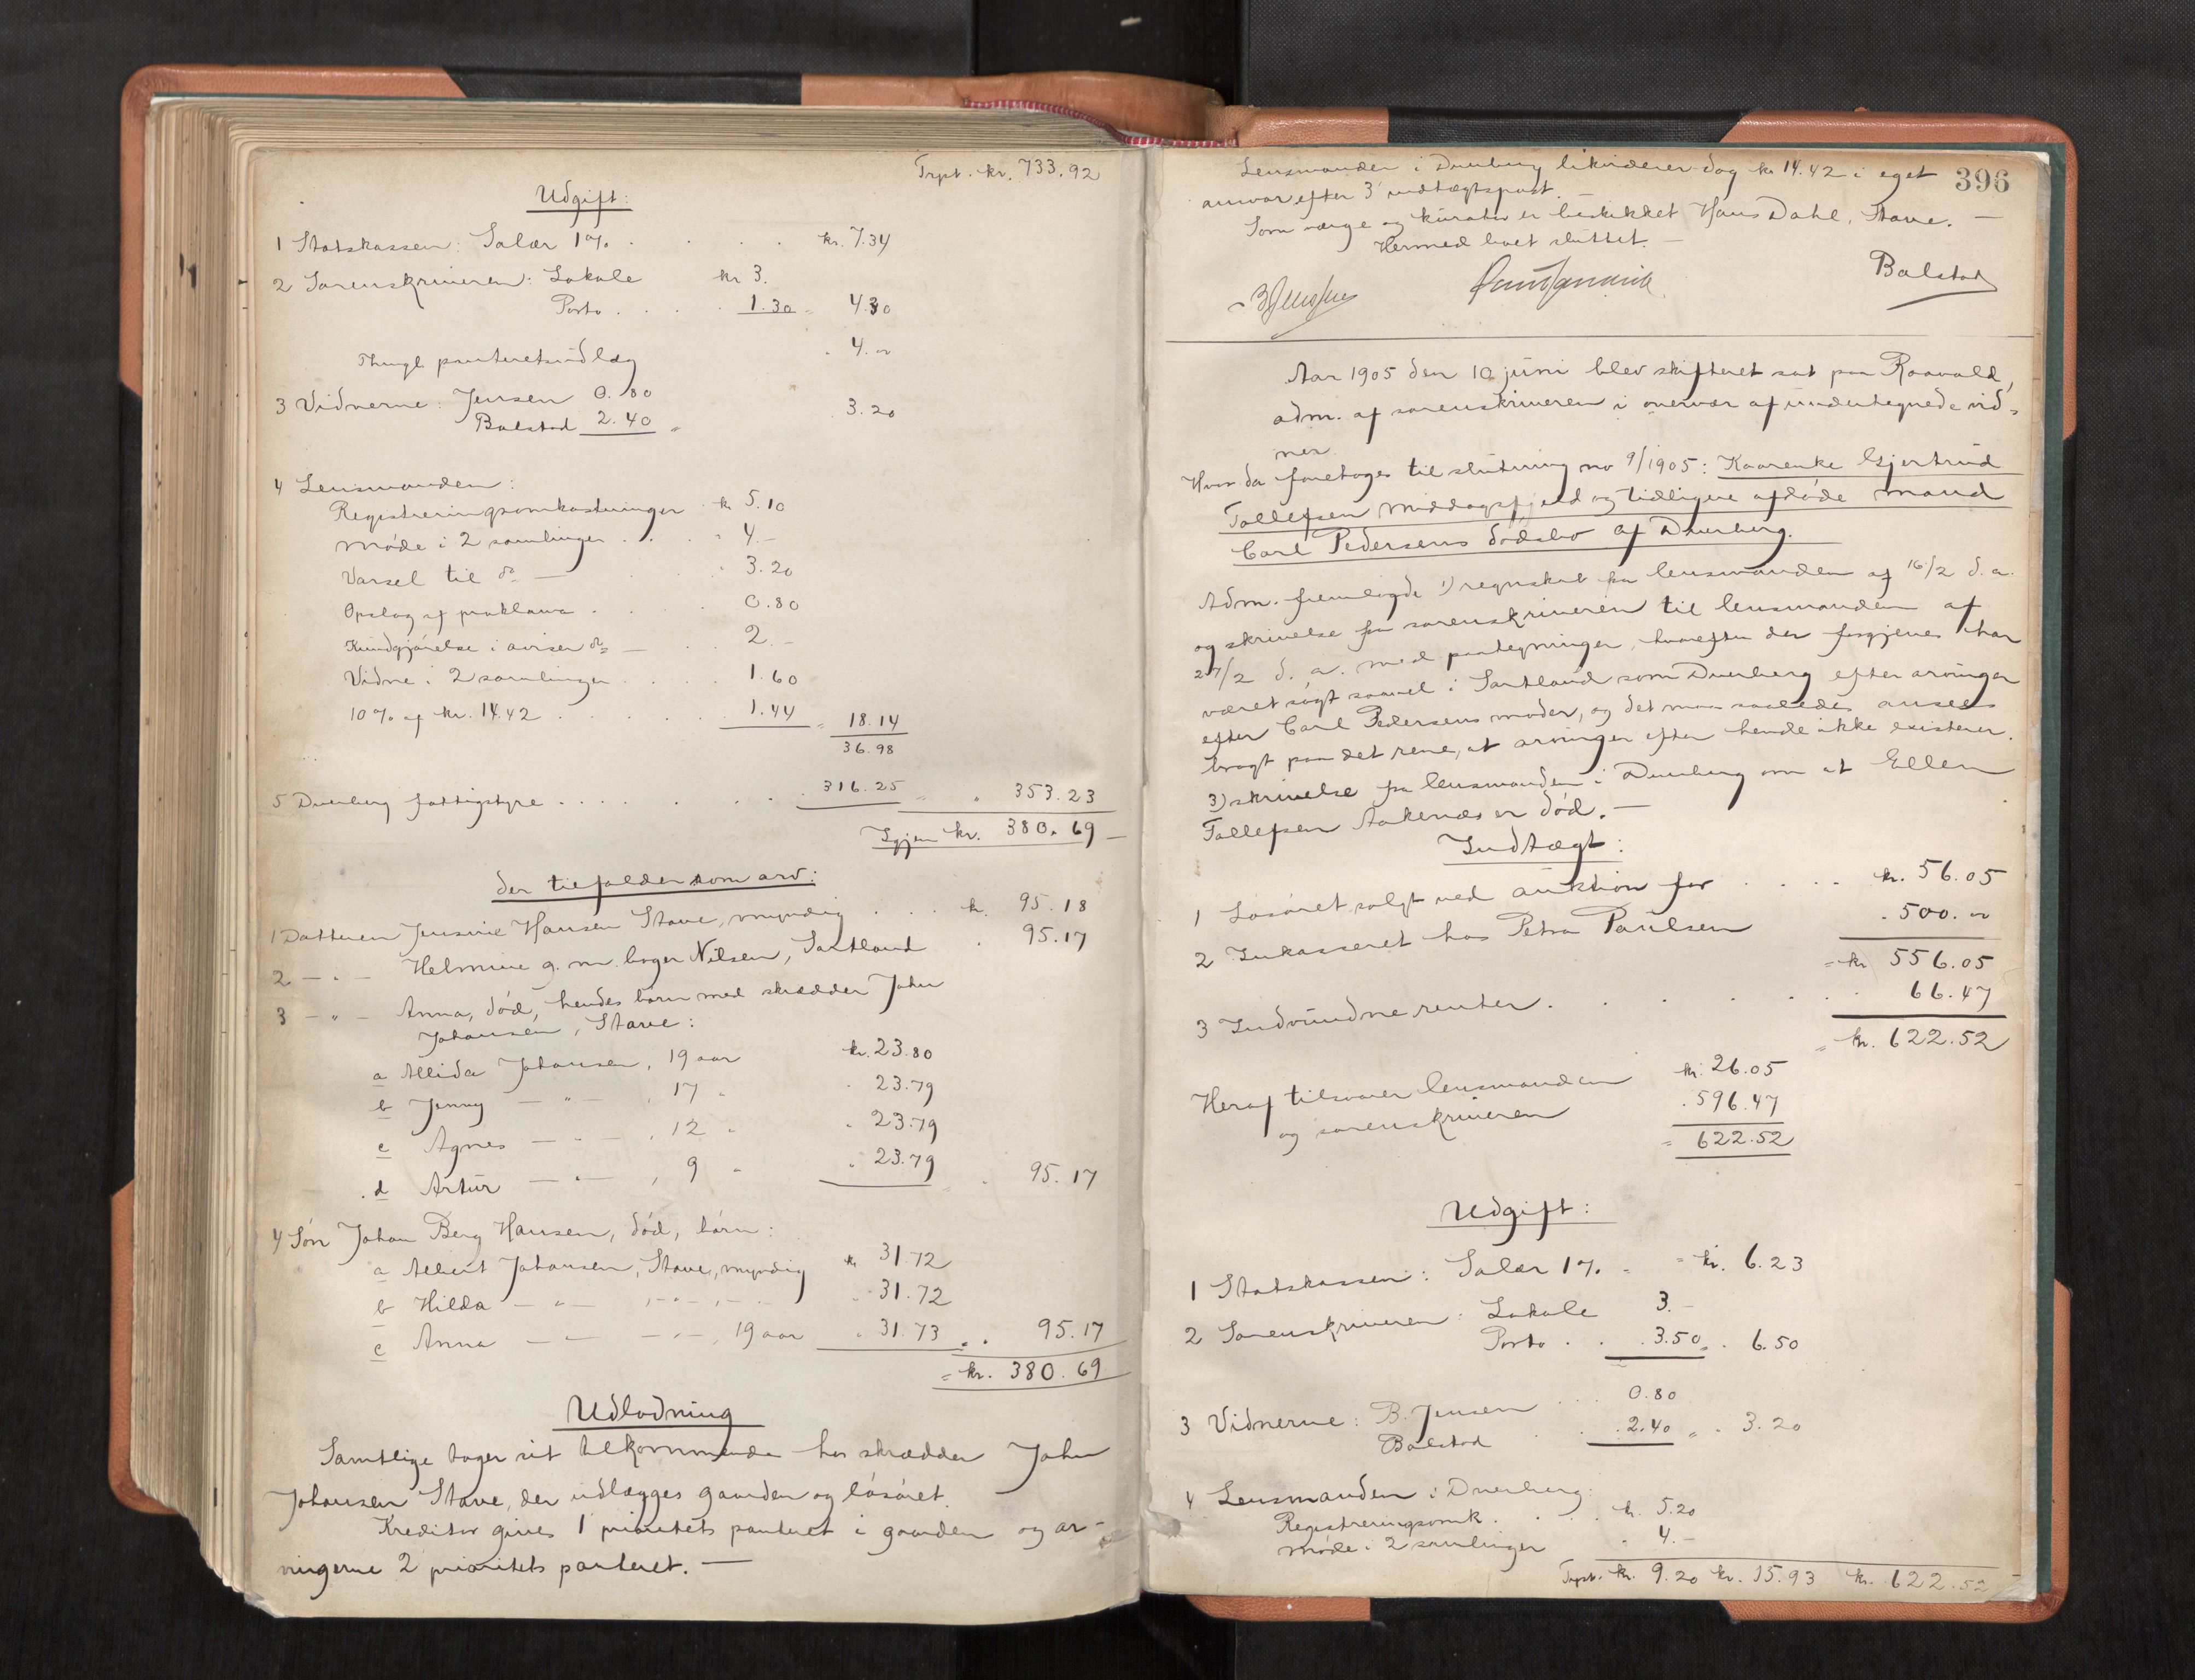 Trpt. kr. 733.92
Udgift:
1 Statskassen: Salær 1% . . . . kr. 7.34
2 Sorenskriveren: Lokale kr 3.
Porto . . . 1.30 = 4.30
Thingl. panteretsudlæg " 4. "
3 Vidnerne: Jensen 0.80
Balstad 2.40 " 3.20
4 Lensmanden:
Registreringsomkostninger kr 5.10
Møde i 2 samlinger . . . " 4.–
Varsel til do — . . " 3.20
Opslag af proklama . . . 0.80
Kundgjørelse i aviser do — . . 2.–
Vidne i 2 samlinger . . . . 1.60
10% af kr. 14.42 . . . . . 1.44 = 18.14
36.98
5 Dverberg fattigstyre . . . . . . . 316.25 " . 353.23
Igjen kr. 380.69 —
der tilfalder som arv:
1 Datteren Jensine Hansen Stave, myndig . . . kr. 95.18
2 — " — Helmine g. m. bager Nilsen, Sortland . 95.17
3 — " — Anna, død, hendes børn med skrædder John
Johansen, Stave:
a Allida Johansen, 19 aar kr. 23.80
b Jenny — " — , 17 " . 23.79
c Agnes — " — , 12 " . 23.79
d Artur — " — , 9 " . 23.79 = . 95.17
4 Søn Johan Berg Hansen, død, børn:
a Albert Johansen, Stave, myndig kr 31.72
b Hilda — " — , — " — , — " — 31.72
c Anna — " — — " — , 19 aar . 31.73 " . 95.17
= kr. 380.69
Udlodning
Samtlige tager sit tilkommende hos skrædder John
Johansen Stave, der udlægges gaarden og løsøret.
Kreditor gives 1 prioritets panteret i gaarden og ar-
vingerne 2 prioritets panteret. —
396
Lensmanden i Dverberg likviderer dog kr 14.42 i eget
ansvar efter 3 indtægtspost. —
Som værge og kurator er beskikket Hans Dahl, Stave. —
Hermed boet sluttet. —
B Jensen
Balstad
Aar 1905 den 10 juni blev skifteret sat paa Raavald,
adm. af sorenskriveren i overvær af undertegnede vid-
ner.
Hvor da foretoges til slutning no 9/1905: Kaarenke Gjertrud
Tollefsen Middagsfjeld og tidligere afdøde mand
Carl Pedersens dødsbo af Dverberg.
Adm. fremlagde 1) regnskab fra lensmanden af 16/2 d. a.
og skrivelse fra sorenskriveren til lensmanden af
27/2 d. a. med paategninger, hvorefter der forgjæves har
været søgt saavel i Sortland som Dverberg efter arvinger
efter Carl Pedersens moder, og det maa saaledes ansees
bragt paa det rene, at arvinger efter hende ikke existerer.
3) skrivelse fra lensmanden i Dverberg om at Ellen
Tollefsen Aakenæs er død. —
Indtægt:
1 Løsøret solgt ved auktion for . . . . kr. 56.05
2 Inkasseret hos Petra Paulsen . 500. "
= kr 556.05
3 Indvundne renter . . . . . . . 66.47
= kr. 622.52
Heraf tilsvarer lensmanden kr. 26.05
og sorenskriveren . 596.47
= 622.52
Udgift:
1 Statskassen: Salær 1% . = kr. 6.23
2 Sorenskriveren: Lokale 3.–
Porto . . . 3.50 = . 6.50
3 Vidnerne: B. Jensen . . . 0.80
Balstad . . 2.40 " . 3.20
4 Lensmanden i Dverberg:
Registreringsomk. . . . kr. 5.20
Møde i 2 samlinger " 4.–
Trpt. kr. 9.20 kr. 15.93 kr. 622.52